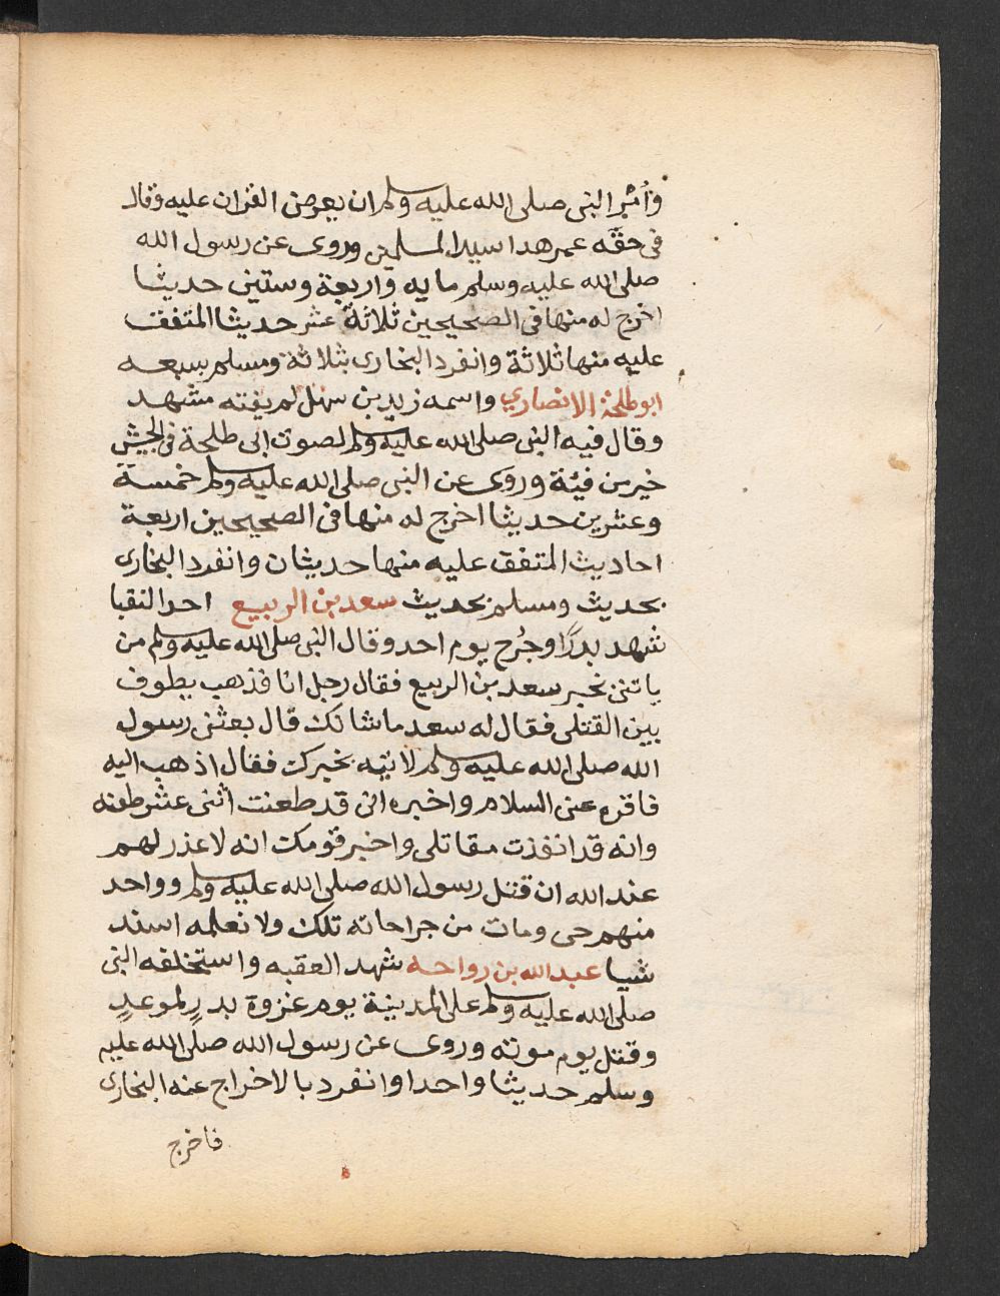 وأُمر النبى صلى الله عليه وسلم ان يعرض القران عليه وقال
فى حقه عمر هدا سيد المسلمين وروى عن رسول الله
صلى الله عليه وسلم مايه واربعة وستين حديثا
اخرج له منها فى الصحيحين ثلاثة عشر حديثا المتفق
عليه منها ثلاثة وانفرد البخارى بثلاثة ومسلم بسبعه
ابو طلحة الانصاري واسمه زيد بن سهل لم يفته مشهد
وقال فيه النبى صلى الله عليه وسلم لصوت ابى طلحة فى الجيش
خير من فيئة وروى عن النبى صلى الله عليه وسلم خمسة
وعشرين حديثا اخرج له منها فى الصحيحين اربعة
احاديث المتفق عليه منها حديثان وانفرد البخارى
بحديث ومسلم بحديث سعد بن الربيع احد النقبا
شهد بدرًا وجُرح يوم احد وقال النبى صلى الله عليه وسلم من
ياتنى بخبر سعد بن الربيع فقال رجل انا فذهب يطوف
بين القتلى فقال له سعد ما شانك قال بعثنى رسول
الله صلى الله عليه وسلم لاتيه بخبرك فقال اذهب اليه
فاقره عنى السلام واخبره انى قد طعنت اثنى عشر طعنه
وانه قد انفذت مقاتلى واخبر قومك انه لا عذر لهم
عند الله ان قتل رسول الله صلى الله عليه وسلم وواحد
منهم حى ومات من جراحاته تلك ولا نعلمه اسند
شيا عبد الله بن رواحه شهد العقبه واستخلفه النبى
صلى الله عليه وسلم على المدينة يوم غزوة بدرٍ لموعدٍ
وقتل يوم موته وروى عن رسول الله صلى الله عليه
وسلم حديثا واحدا وانفرد بالاخراج عنه البخارى
فاخرج